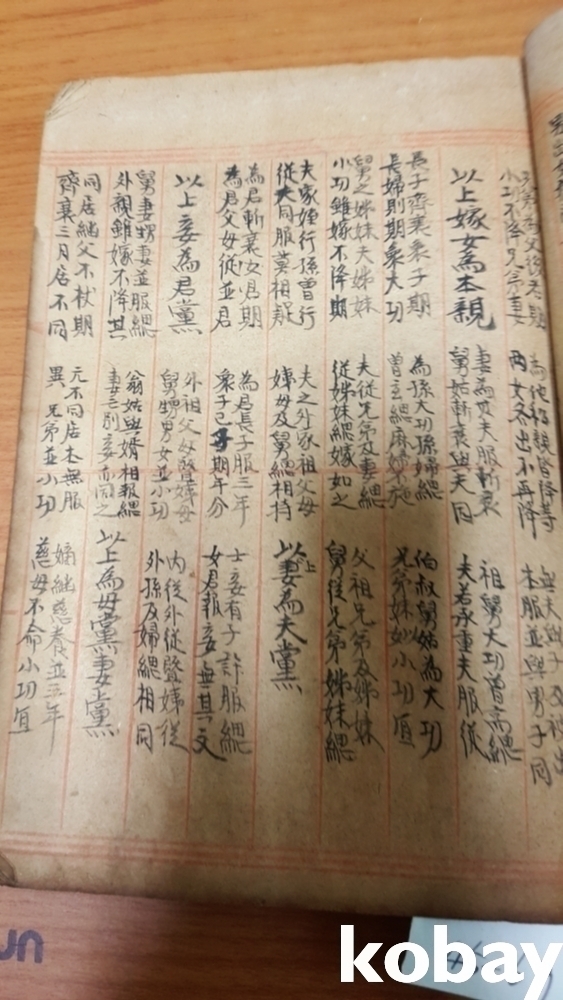 小功不降兄弟妻
兩女各出不再降
無夫與子及被出
本服並與男子同
以上嫁女為本親
妻為夫夫服斬衰
舅姑斬衰與夫同
祖舅大功曾高緦
夫若承重夫服從
長子齊衰衆子期
長婦則期衆大功
為孫大功孫婦緦
曾玄緦麻婦不施
伯叔舅姑為大功
兄弟妹如小功宜
舅之姊妹夫姊妹
小功雖嫁不降期
夫從兄弟及妻緦
從姊妹緦嫁如之
父祖兄弟及姊妹
舅從兄弟姊妹緦
夫家姪行孫曾行
從夫同服莫相疑
夫之外家祖父母
姨母及舅緦相持
以上妻為夫黨
為君斬衰女君期
為君父母從並君
為君長子服三年
衆子己子期年分
士妾有子許服緦
女君報妾無其文
以上妾為君黨
外祖父母曁姨母
舅甥男女並小功
內從外從曁姨從
外孫及婦緦相同
舅妻甥妻並服緦
外親雖嫁不降其
翁姑與婿相報緦
妻亡別娶亦同之
以上為母黨妻黨
同居繼父不杖期
齊衰三月居不同
元不同居本無服
異兄弟並小功
嫡繼慈養並三年
慈母不命小功宜
kobay